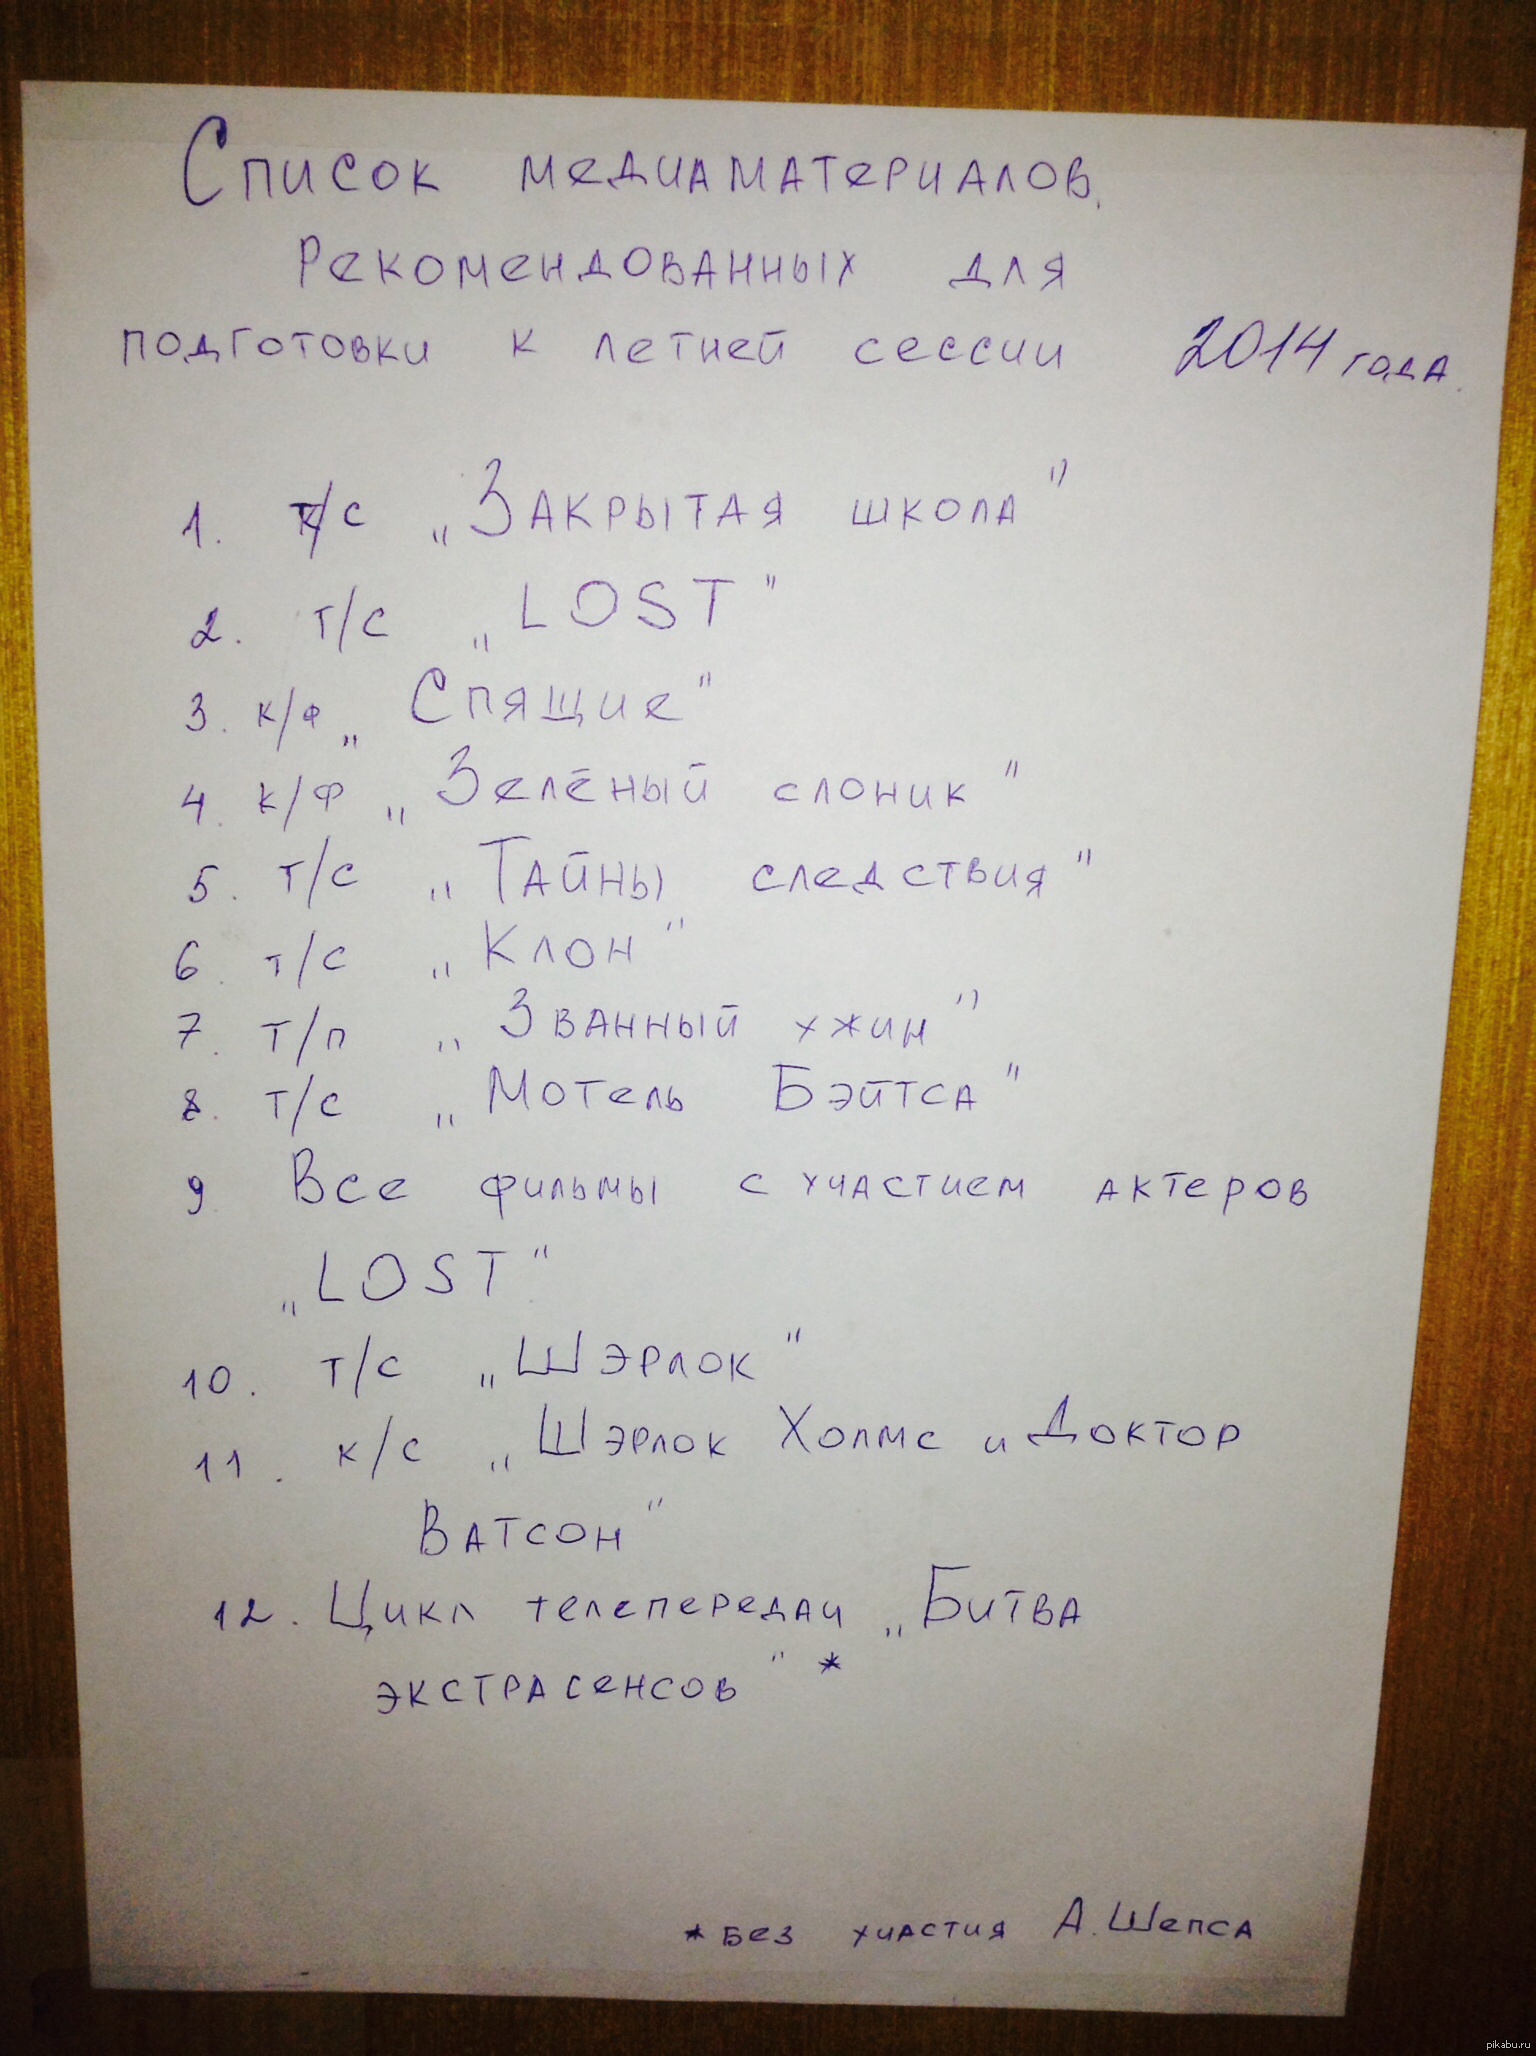 Список медиаматериалов,
рекомендованных для
подготовки к летней сессии 2014 года.
1. т/с „Закрытая школа"
2. т/с „LOST"
3. к/ф „Спящие"
4. к/ф „Зелёный слоник"
5. т/с „Тайны следствия"
6. т/с „Клон"
7. т/п „Званный ужин"
8. т/с „Мотель Бэйтса"
9 Все фильмы с участием актеров
„LOST"
10. т/с „Шэрлок"
11. к/с „Шэрлок Холмс и Доктор
Ватсон"
12. Цикл телепередач „Битва
экстрасенсов" *
* без участия А. Шепса
pikabu.ru